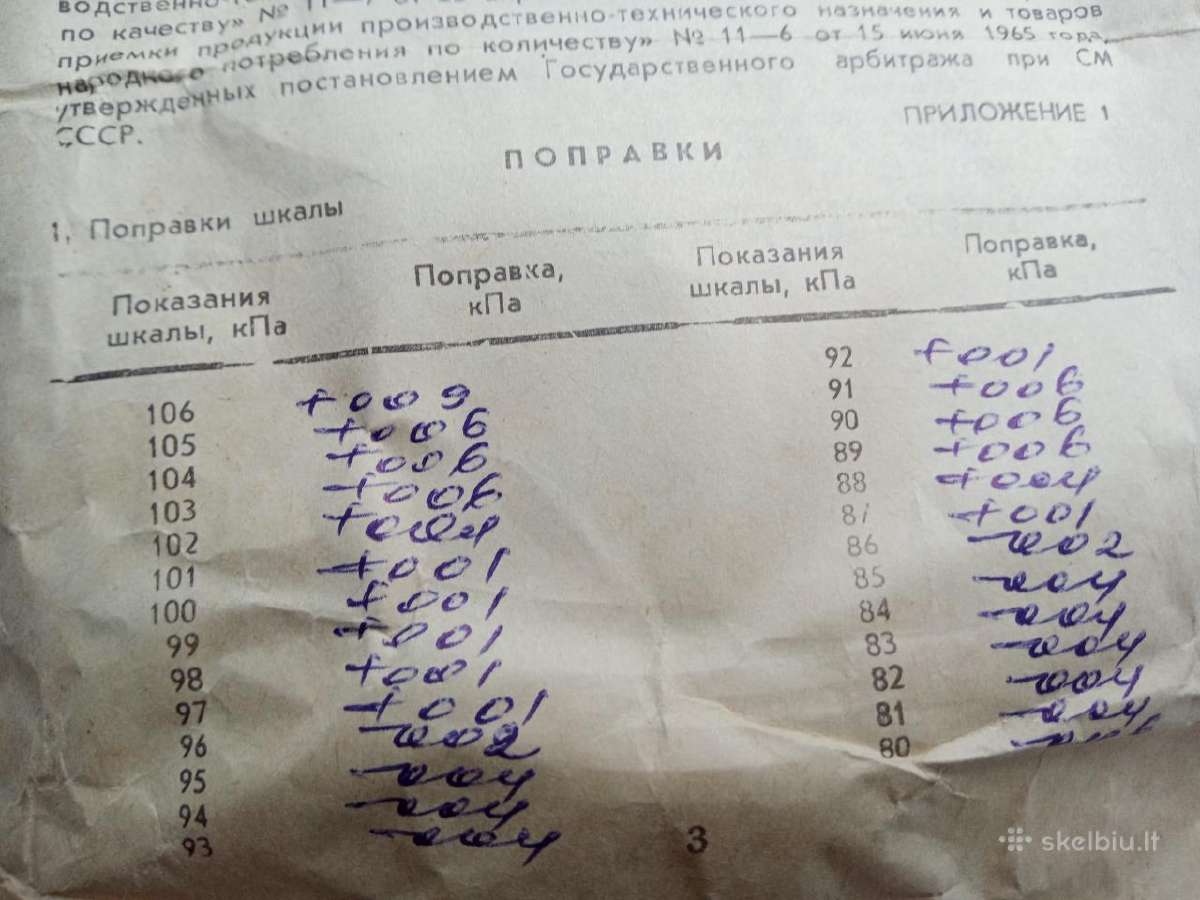 по качеству» № 11—7
приемки продукции производственно-технического назначения и товаров
народного потребления по количеству» № 11—6 от 15 июня 1965 года,
утвержденных постановлением Государственного арбитража при СМ
СССР.
ПРИЛОЖЕНИЕ 1
ПОПРАВКИ
1. Поправки шкалы
Показания шкалы, кПа Поправка, кПа Показания шкалы, кПа Поправка, кПа
106 +009 92 +001
105 +006 91 +006
104 +006 90 +006
103 +006 89 +006
102 +004 88 +004
101 +001 87 +001
100 +001 86 -002
99 +001 85 -004
98 +001 84 -004
97 +001 83 -004
96 -002 82 -004
95 -004 81 -004
94 -004 80
93 -004
3
skelbiu.lt